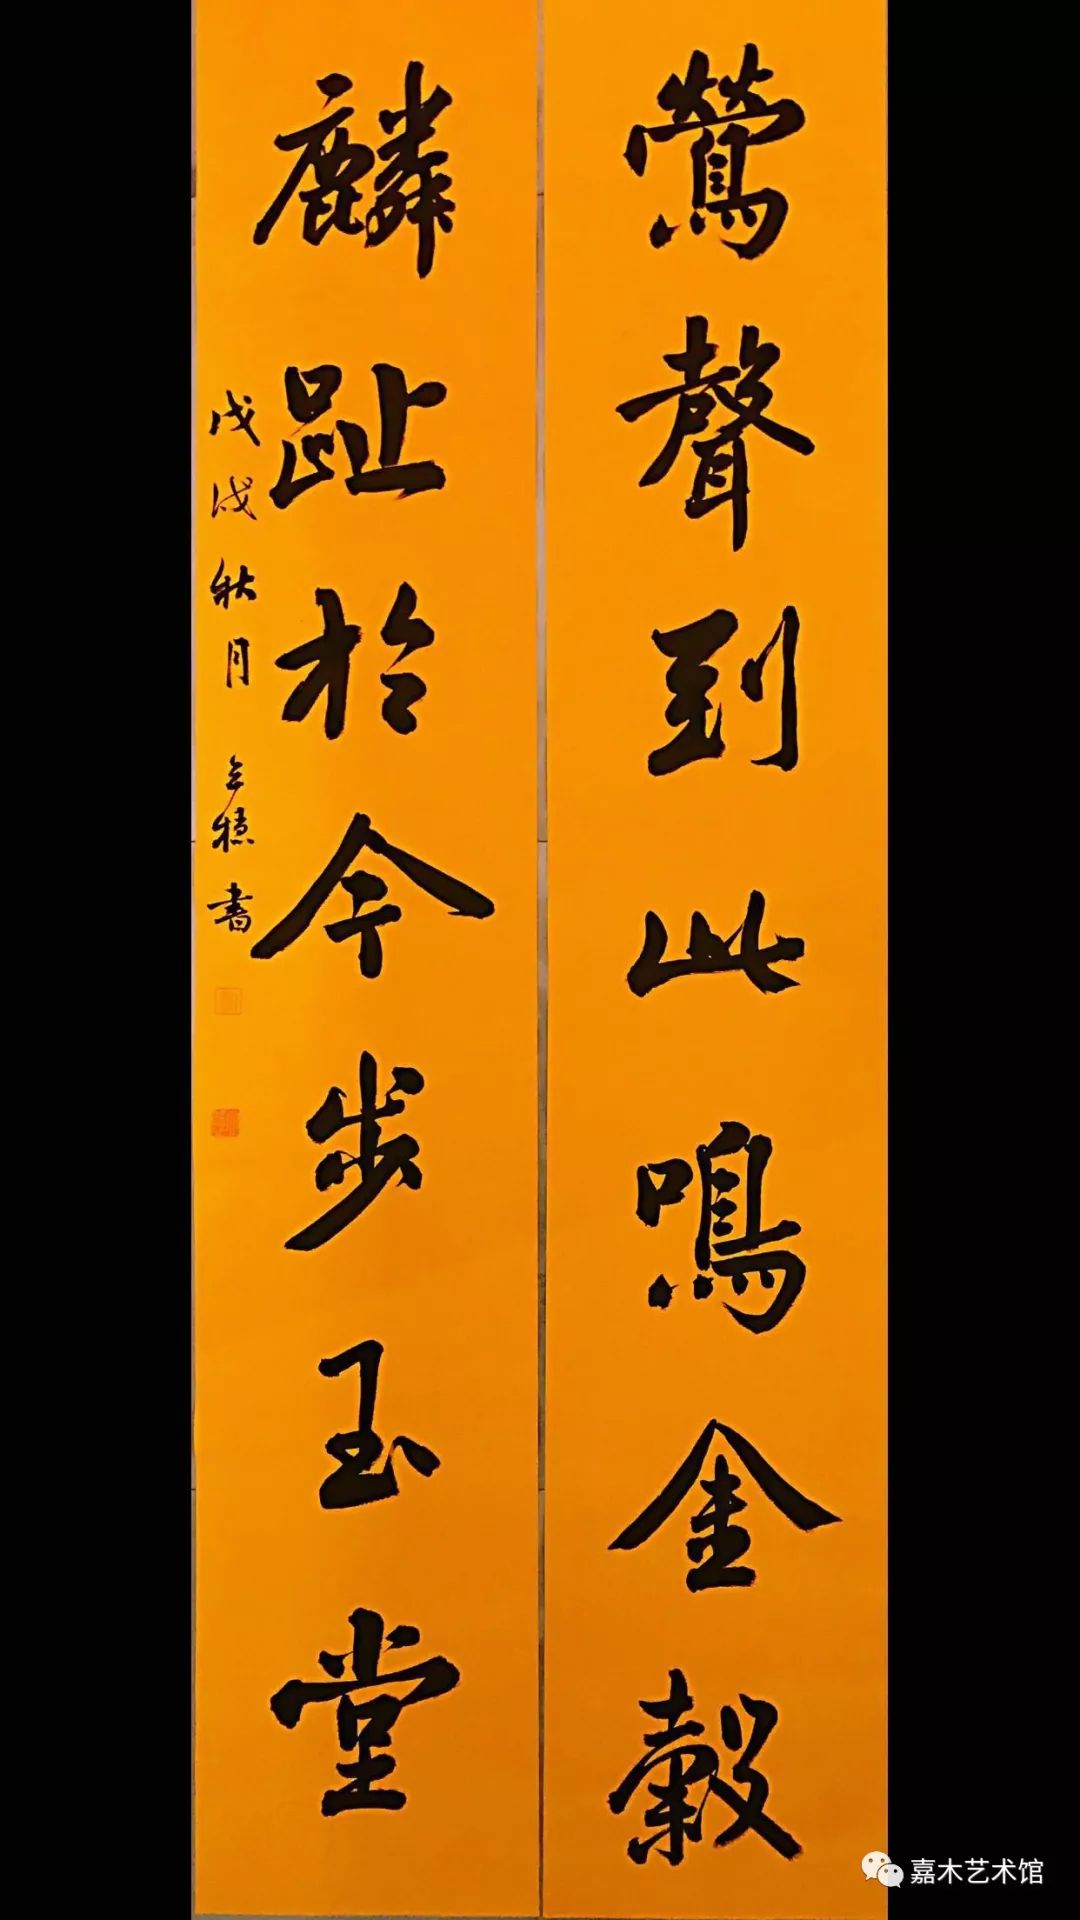 鶯聲到此鳴金穀
麟趾於今步玉堂
戊戌秋月
書
嘉木艺术馆